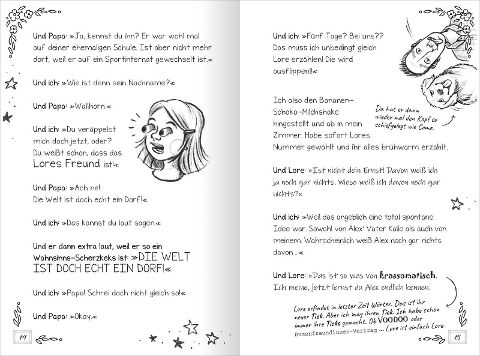 Und Papa: »Ja, kennst du ihn? Er war wohl mal
auf deiner ehemaligen Schule. Ist aber nicht mehr
dort, weil er auf ein Sportinternat gewechselt ist.«
Und ich: »Wie ist denn sein Nachname?«
Und Papa: »Wallhorn.«
Und ich: »Du veräppelst
mich doch jetzt, oder?
Du weißt schon, dass das
Lores Freund ist!«
Und Papa: »Ach ne!
Die Welt ist doch echt ein Dorf!«
Und ich: »Das kannst du laut sagen.«
Und er dann extra laut, weil er so ein
Wahnsinns-Scherzkeks ist: »DIE WELT
IST DOCH ECHT EIN DORF!«
Und ich: »Papa! Schrei doch nicht gleich so!«
Und Papa: »Okay.«
14
Und ich: »Fünf Tage? Bei uns??
Das muss ich unbedingt gleich
Lore erzählen! Die wird
ausflippen!!«
Da hat er dann
wieder mal den Kopf so
schiefgelegt wie Oma.
Ich also den Bananen-
Schoko-Milchshake
hingestellt und ab in mein
Zimmer. Habe sofort Lores
Nummer gewählt und ihr alles brühwarm erzählt.
Und Lore: »Ist nicht dein Ernst! Davon weiß ich
ja noch gar nichts. Wieso weiß ich davon noch gar
nichts?«
Und ich: »Weil das angeblich eine total spontane
Idee war. Sowohl von Alex' Vater Kalle als auch von
meinem. Wahrscheinlich weiß Alex noch gar nichts
davon ...«
Und Lore: »Das ist so was von krassomatisch.
Ich meine, jetzt lernst du Alex endlich kennen.
Lore erfindet in letzter Zeit Wörter. Das ist ihr
neuer Tick. Aber ich mag ihren Tick. Ich habe schon
immer ihre Ticks gemocht. Ob VOODOO oder
Busenfreundinnen-Vertrag ... Lore ist einfach Lore.
15